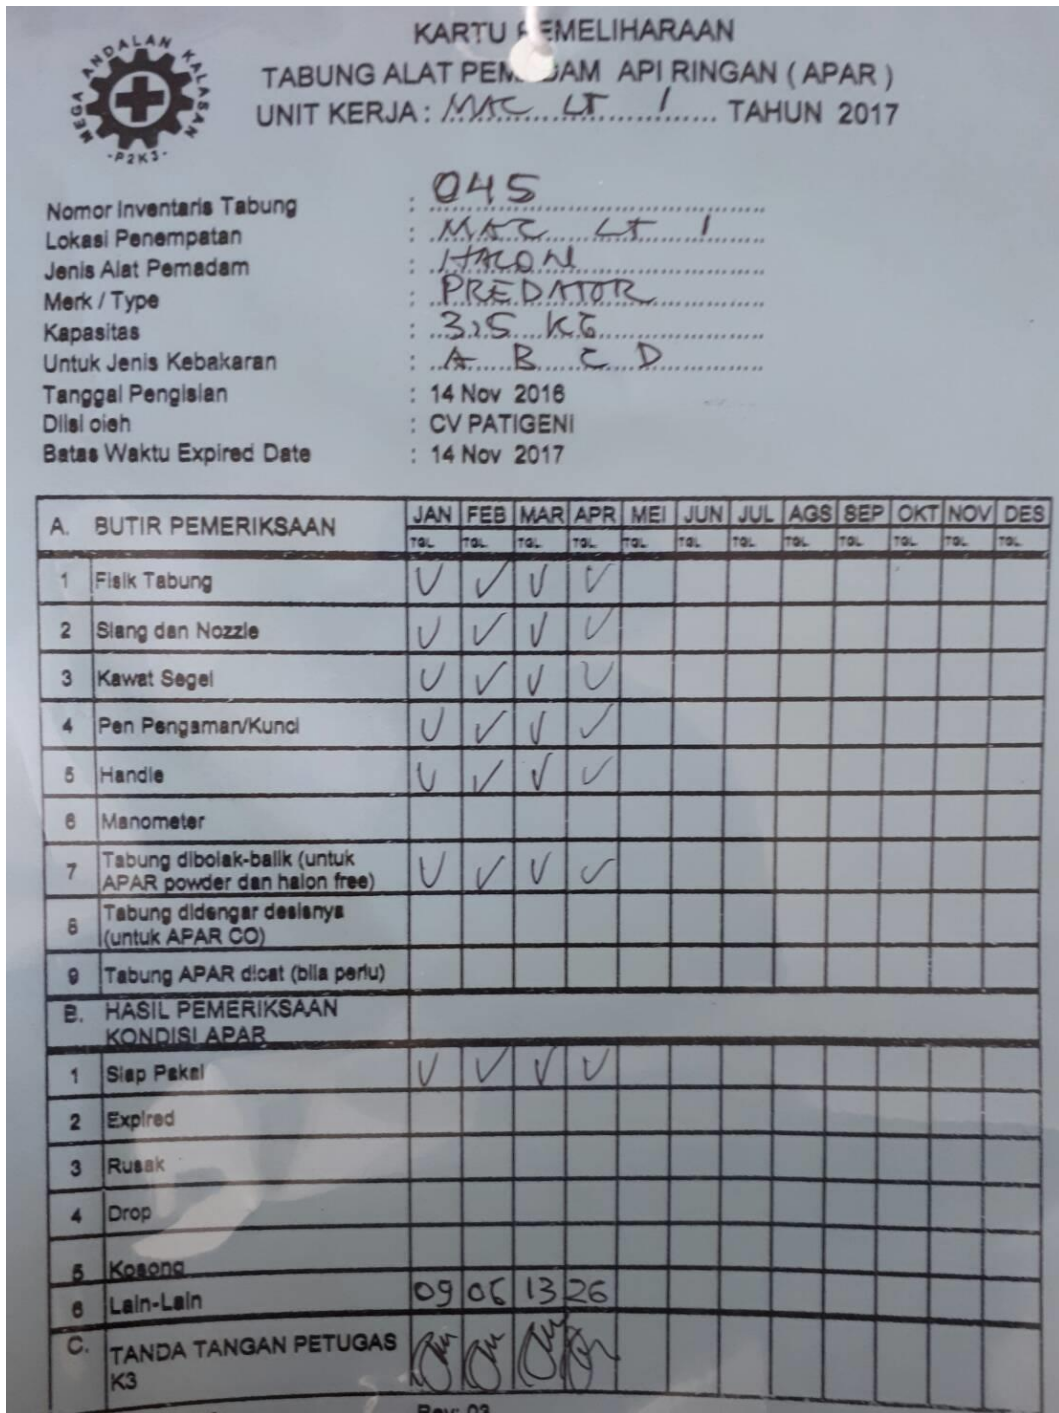 MEGA ANDALAN KALASAN
-P2K3-
KARTU PEMELIHARAAN
TABUNG ALAT PEMADAM API RINGAN ( APAR )
UNIT KERJA : MAC LT 1 TAHUN 2017
Nomor Inventaris Tabung : 045
Lokasi Penempatan : MAC LT 1
Jenis Alat Pemadam : HALON
Merk / Type : PREDATOR
Kapasitas : 3,5 KG
Untuk Jenis Kebakaran : A B C D
Tanggal Pengisian : 14 Nov 2016
Diisi oleh : CV PATIGENI
Batas Waktu Expired Date : 14 Nov 2017
A. BUTIR PEMERIKSAAN JAN FEB MAR APR MEI JUN JUL AGS SEP OKT NOV DES
TGL. TGL. TGL. TGL. TGL. TGL. TGL. TGL. TGL. TGL. TGL. TGL.
1 Fisik Tabung V V V V
2 Slang dan Nozzle V V V V
3 Kawat Segel V V V V
4 Pen Pengaman/Kunci V V V V
5 Handle V V V V
6 Manometer
7 Tabung dibolak-balik (untuk
APAR powder dan halon free) V V V V
8 Tabung didengar desisnya
(untuk APAR CO)
9 Tabung APAR dicat (bila perlu)
B. HASIL PEMERIKSAAN
KONDISI APAR
1 Siap Pakai V V V V
2 Expired
3 Rusak
4 Drop
5 Kosong
6 Lain-Lain 09 06 13 26
C. TANDA TANGAN PETUGAS
K3
Rev: 03